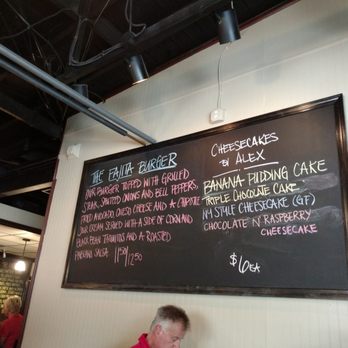 THE FAJITA BURGER
OUR BURGER TOPPED WITH GRILLED
STEAK, SAUTEED ONIONS AND BELL PEPPERS,
FRIED AVOCADO, QUESO CHEESE AND A CHIPOTLE
SOUR CREAM. SERVED WITH A SIDE OF CORN AND
BLACK BEAN AND A ROASTED
SALSA 11.50/12.50
CHEESECAKES
BY ALEX
BANANA PUDDING CAKE
TRIPLE CHOCOLATE CAKE
NY STYLE CHEESECAKE (GF)
CHOCOLATE N' RASPBERRY
CHEESECAKE
$6 EA